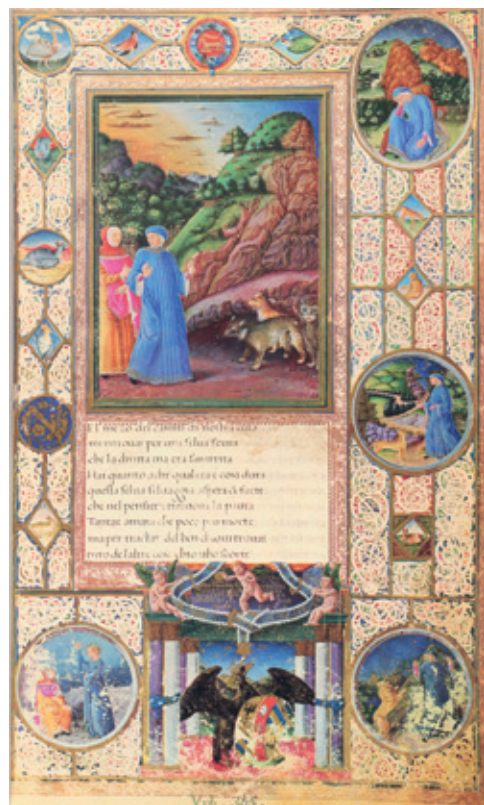 mezo del camin di nostra uita
mi ritrouai per una silua scura
che la diritta uia era smarrita
Hai quanto adir qual era e cosa dura
questa silua aspera & forte
che nel pensier rinoua la paura
Tantae amara che poco e piu morte
ma per tractar del ben chio ui trouai
diro de laltre cose chio uho scorte
365